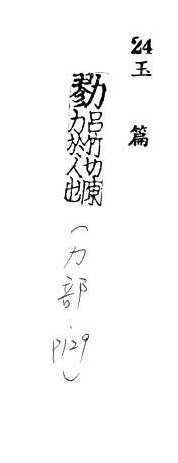 24
玉篇
勠
呂竹切陳
力於人也
(力部.P129)